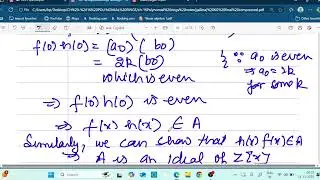 f(0)h(0) = (a0)(b0)
= 2k(b0) { ∵ a0 is even
which is even ⇒ a0 = 2k for some k
⇒ f(0)h(0) is even
⇒ f(x)h(x) ∈ A
Similarly, we can show that h(x)f(x) ∈ A
⇒ A is an ideal of Z[x]